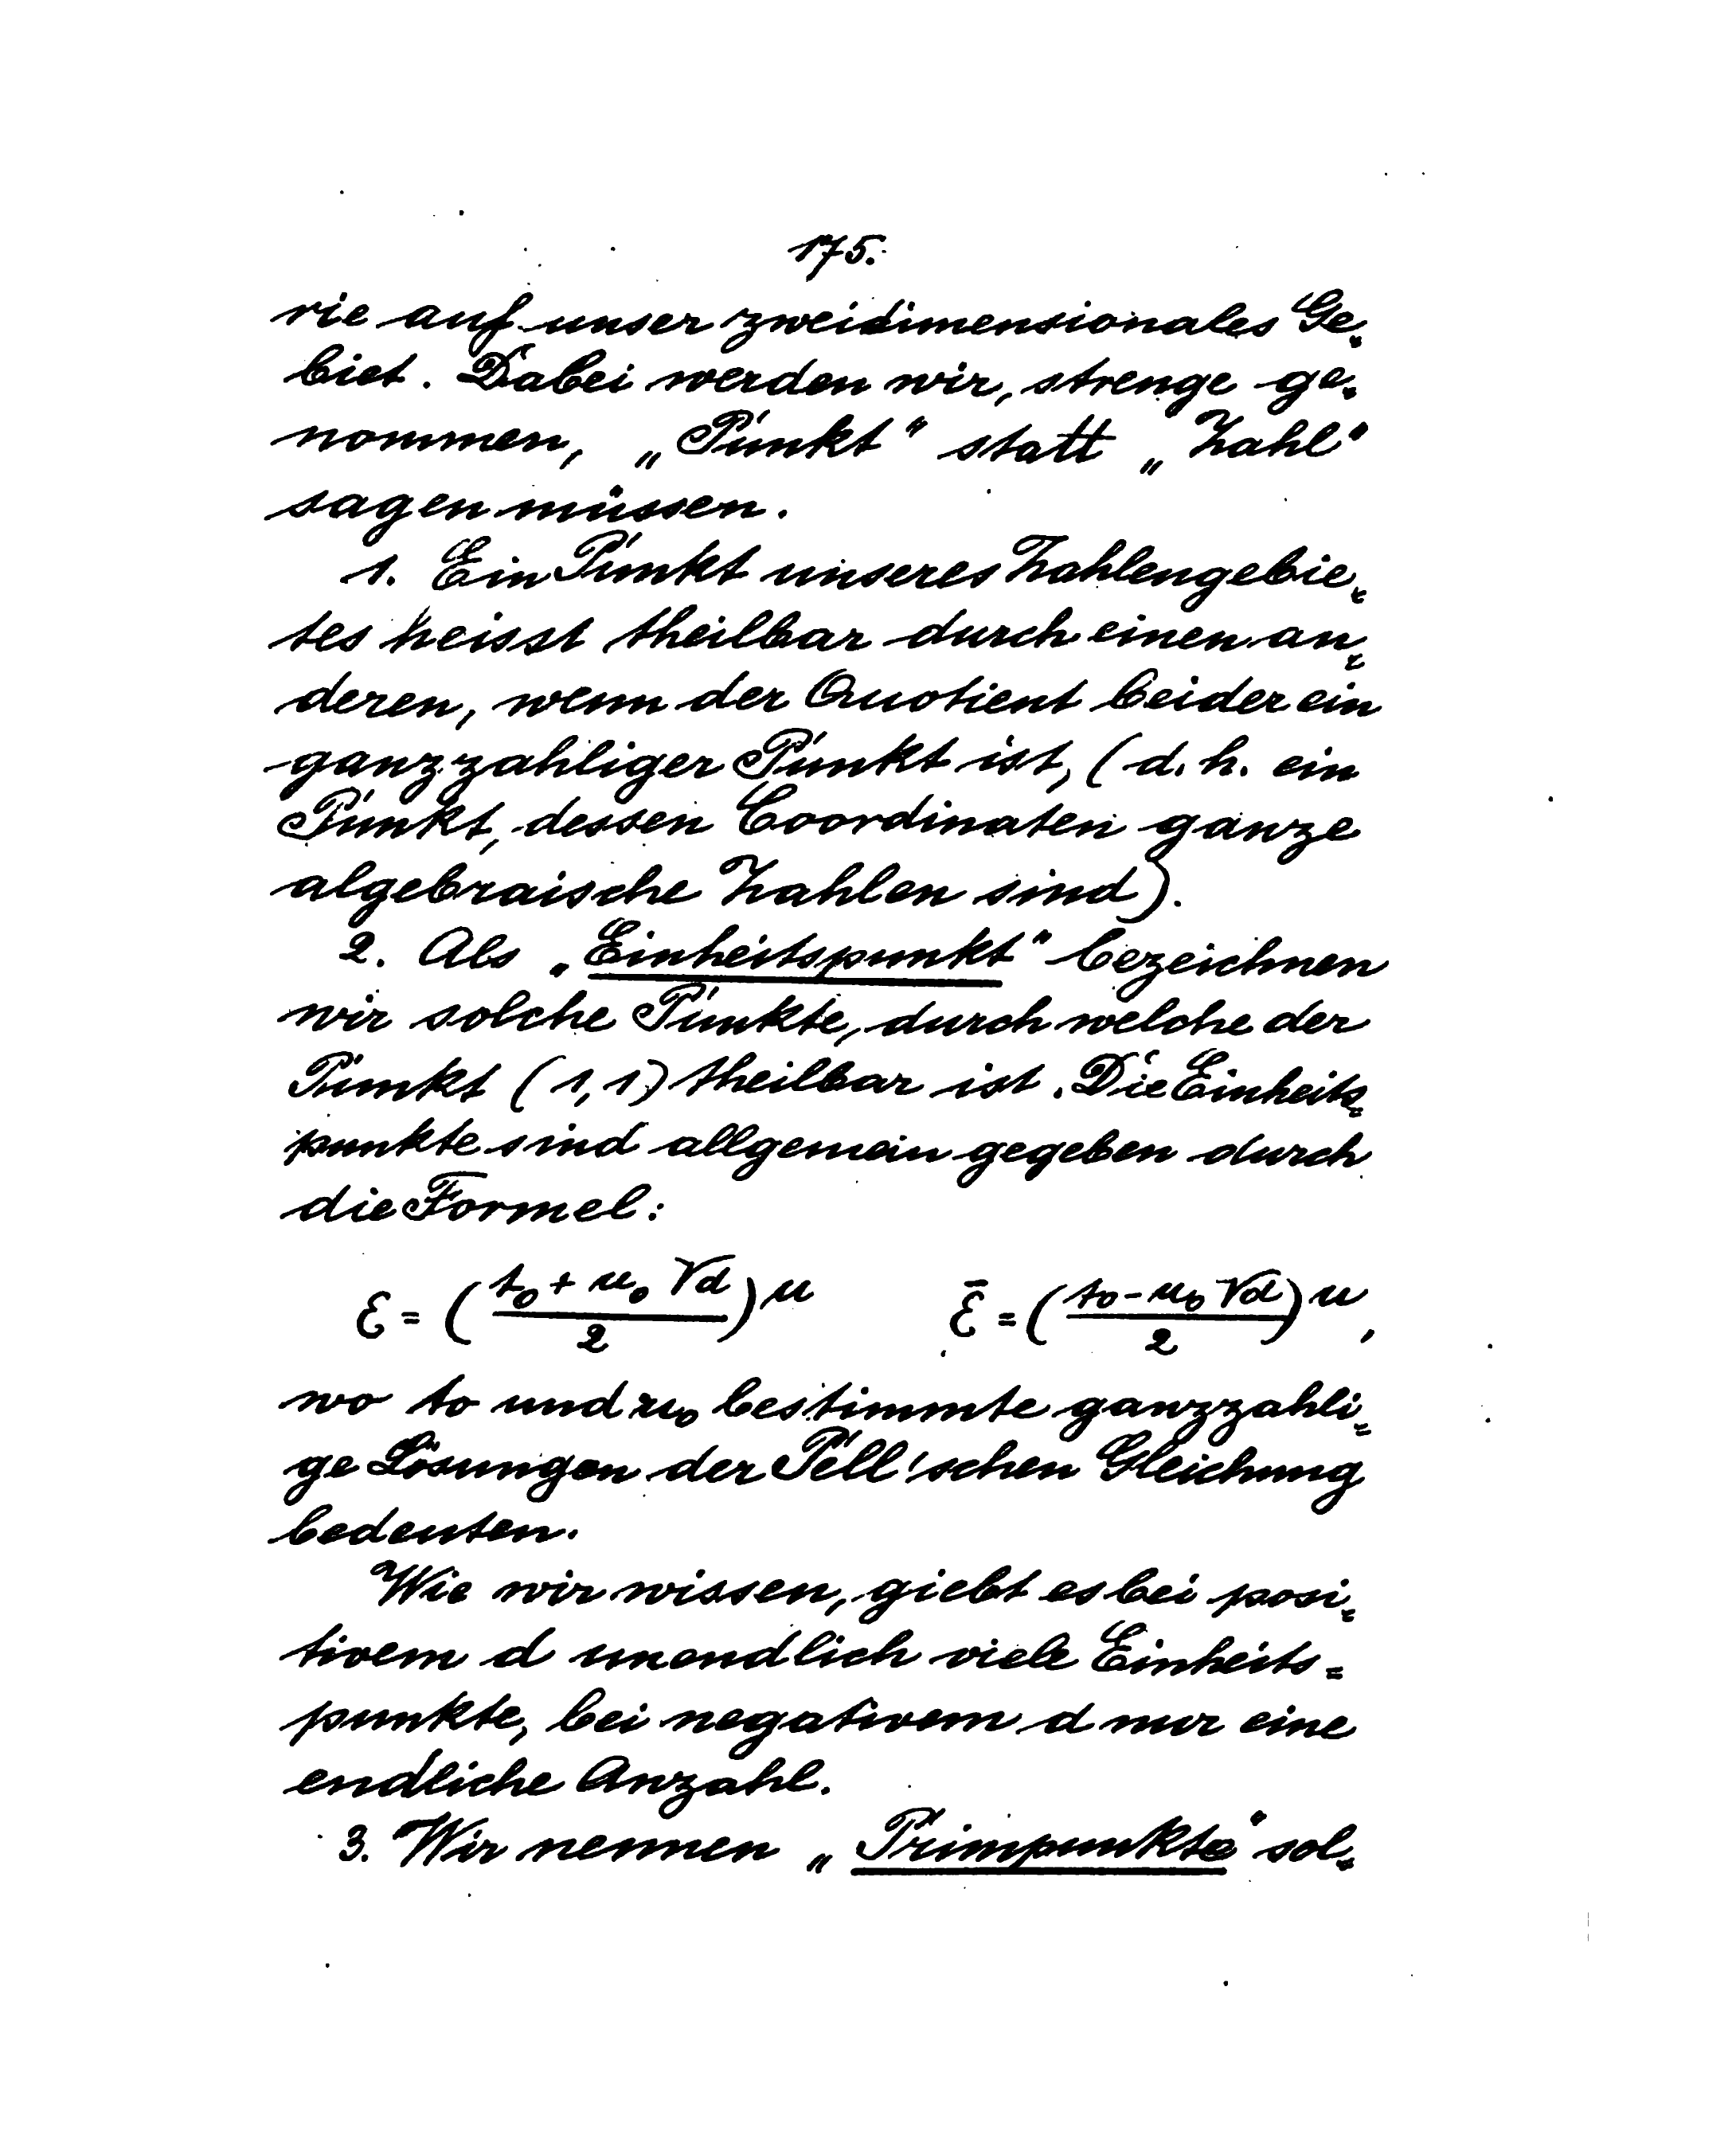 175.
rie auf unser zweidimensionales Ge-
biet. Dabei werden wir, strenge ge-
nommen, „Punkt“ statt „Zahl“
sagen müssen.
1. Ein Punkt unseres Zahlengebie-
tes heisst theilbar durch einen an-
deren, wenn der Quotient beider ein
ganzzahliger Punkt ist, (d. h. ein
Punkt, dessen Coordinaten ganze
algebraische Zahlen sind).
2. Als „Einheitspunkt“ bezeichnen
wir solche Punkte, durch welche der
Punkt (1,1) theilbar ist. Die Einheits-
punkte sind allgemein gegeben durch
die Formel:
ε = ((t₀ + u₀ √d)/2)^μ ε̄ = ((t₀ - u₀ √d)/2)^μ,
wo t₀ und u₀ bestimmte ganzzahli-
ge Lösungen der Pell'schen Gleichung
bedeuten.
Wie wir wissen, giebt es bei posi-
tivem d unendlich viele Einheits=
punkte, bei negativem d nur eine
endliche Anzahl.
3. Wir nennen „Primpunkte“ sol-